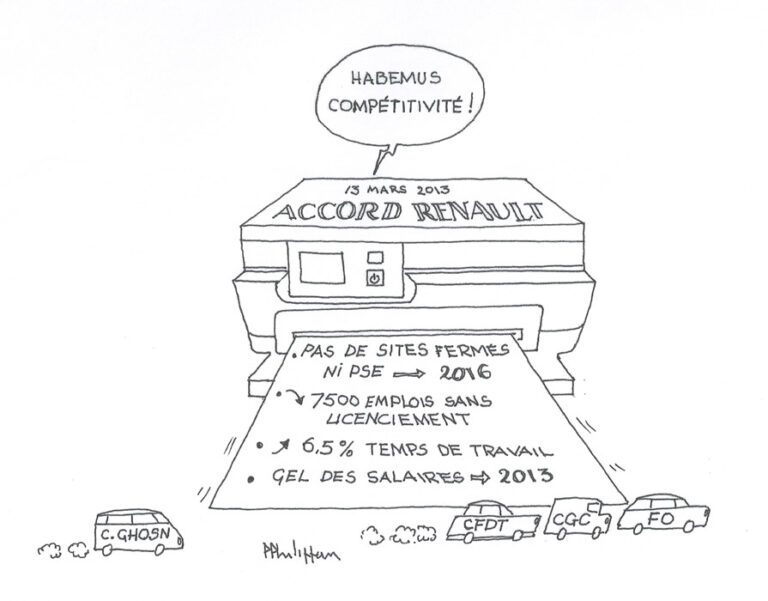 HABEMUS
COMPÉTITIVITÉ !
13 MARS 2013
ACCORD RENAULT
• PAS DE SITES FERMÉS
NI PSE ⇨ 2016
• ↘ 7500 EMPLOIS SANS
LICENCIEMENT
• ↗ 6,5% TEMPS DE TRAVAIL
• GEL DES SALAIRES ⇨ 2013
C. GHOSN
CFDT
CGC
FO